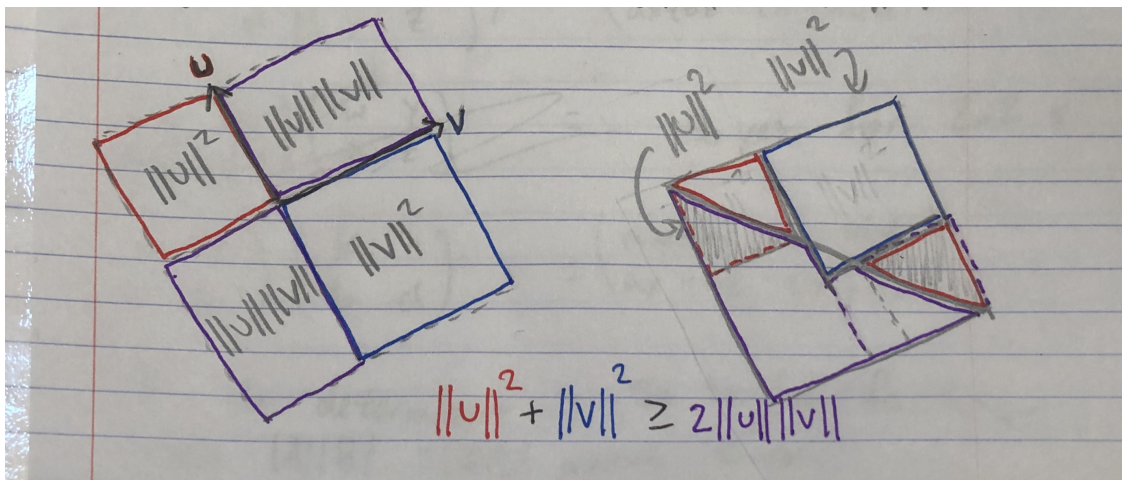 U
||u|| ||v||
V
||u||²
||v||²
||u|| ||v||
||v||²
||u||²
||u||² + ||v||² ≥ 2||u|| ||v||